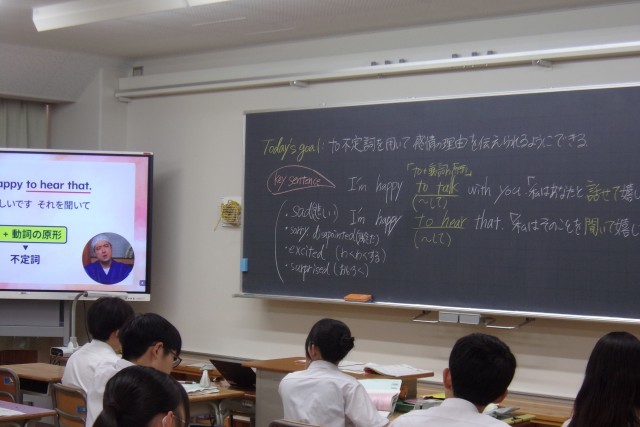 appy to hear that.
しいです それを聞いて
+ 動詞の原形
不定詞
Today's goal: to 不定詞を用いて 感情の理由を伝えられるようにできる
「to+動詞の原形」
Key sentence
I'm happy to talk with you.「私はあなたと話せて嬉し
(〜して)
・sad(悲しい) I'm happy to hear that.「私はそのことを聞いて嬉し
(〜して)
・excited (わくわくする)
・surprised (おどろく)